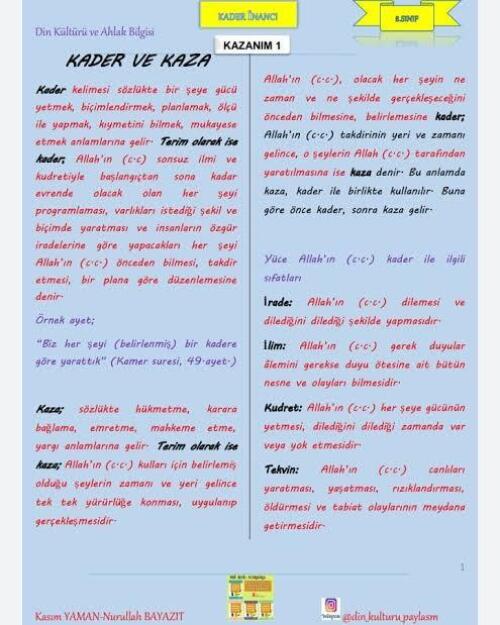 Din Kültürü ve Ahlak Bilgisi
KADER İNANCI
8.SINIF
KAZANIM 1
KADER VE KAZA
Kader kelimesi sözlükte bir şeye gücü
yetmek, biçimlendirmek, planlamak, ölçü
ile yapmak, kıymetini bilmek, mukayese
etmek anlamlarına gelir. Terim olarak ise
kader; Allah'ın (c.c) sonsuz ilmi ve
kudretiyle başlangıçtan sona kadar
evrende olacak olan her şeyi
programlaması, varlıkları istediği şekil ve
biçimde yaratması ve insanların özgür
iradelerine göre yapacakları her şeyi
Allah'ın (c.c.) önceden bilmesi, takdir
etmesi, bir plana göre düzenlemesine
denir.
Örnek ayet;
"Biz her şeyi (belirlenmiş) bir kadere
göre yarattık" (Kamer suresi, 49.ayet.)
Kaza; sözlükte hükmetme, karara
bağlama, emretme, mahkeme etme,
yargı anlamlarına gelir. Terim olarak ise
kaza; Allah'ın (c.c.) kulları için belirlemiş
olduğu şeylerin zamanı ve yeri gelince
tek tek yürürlüğe konması, uygulanıp
gerçekleşmesidir.
Allah'ın (c.c.), olacak her şeyin ne
zaman ve ne şekilde gerçekleşeceğini
önceden bilmesine, belirlemesine kader;
Allah'ın (c.c.) takdirinin yeri ve zamanı
gelince, o şeylerin Allah (c.c.) tarafından
yaratılmasına ise kaza denir. Bu anlamda
kaza, kader ile birlikte kullanılır. Buna
göre önce kader, sonra kaza gelir.
Yüce Allah'ın (c.c.) kader ile ilgili
sıfatları
İrade: Allah'ın (c.c.) dilemesi ve
dilediğini dilediği şekilde yapmasıdır.
İlim: Allah'ın (c.c.) gerek duyular
âlemini gerekse duyu ötesine ait bütün
nesne ve olayları bilmesidir.
Kudret: Allah'ın (c.c.) her şeye gücünün
yetmesi, dilediğini dilediği zamanda var
veya yok etmesidir.
Tekvin: Allah'ın (c.c.) canlıları
yaratması, yaşatması, rızıklandırması,
öldürmesi ve tabiat olaylarının meydana
getirmesidir.
1
Kasım YAMAN-Nurullah BAYAZIT
Instagram
@din_kulturu_paylasm